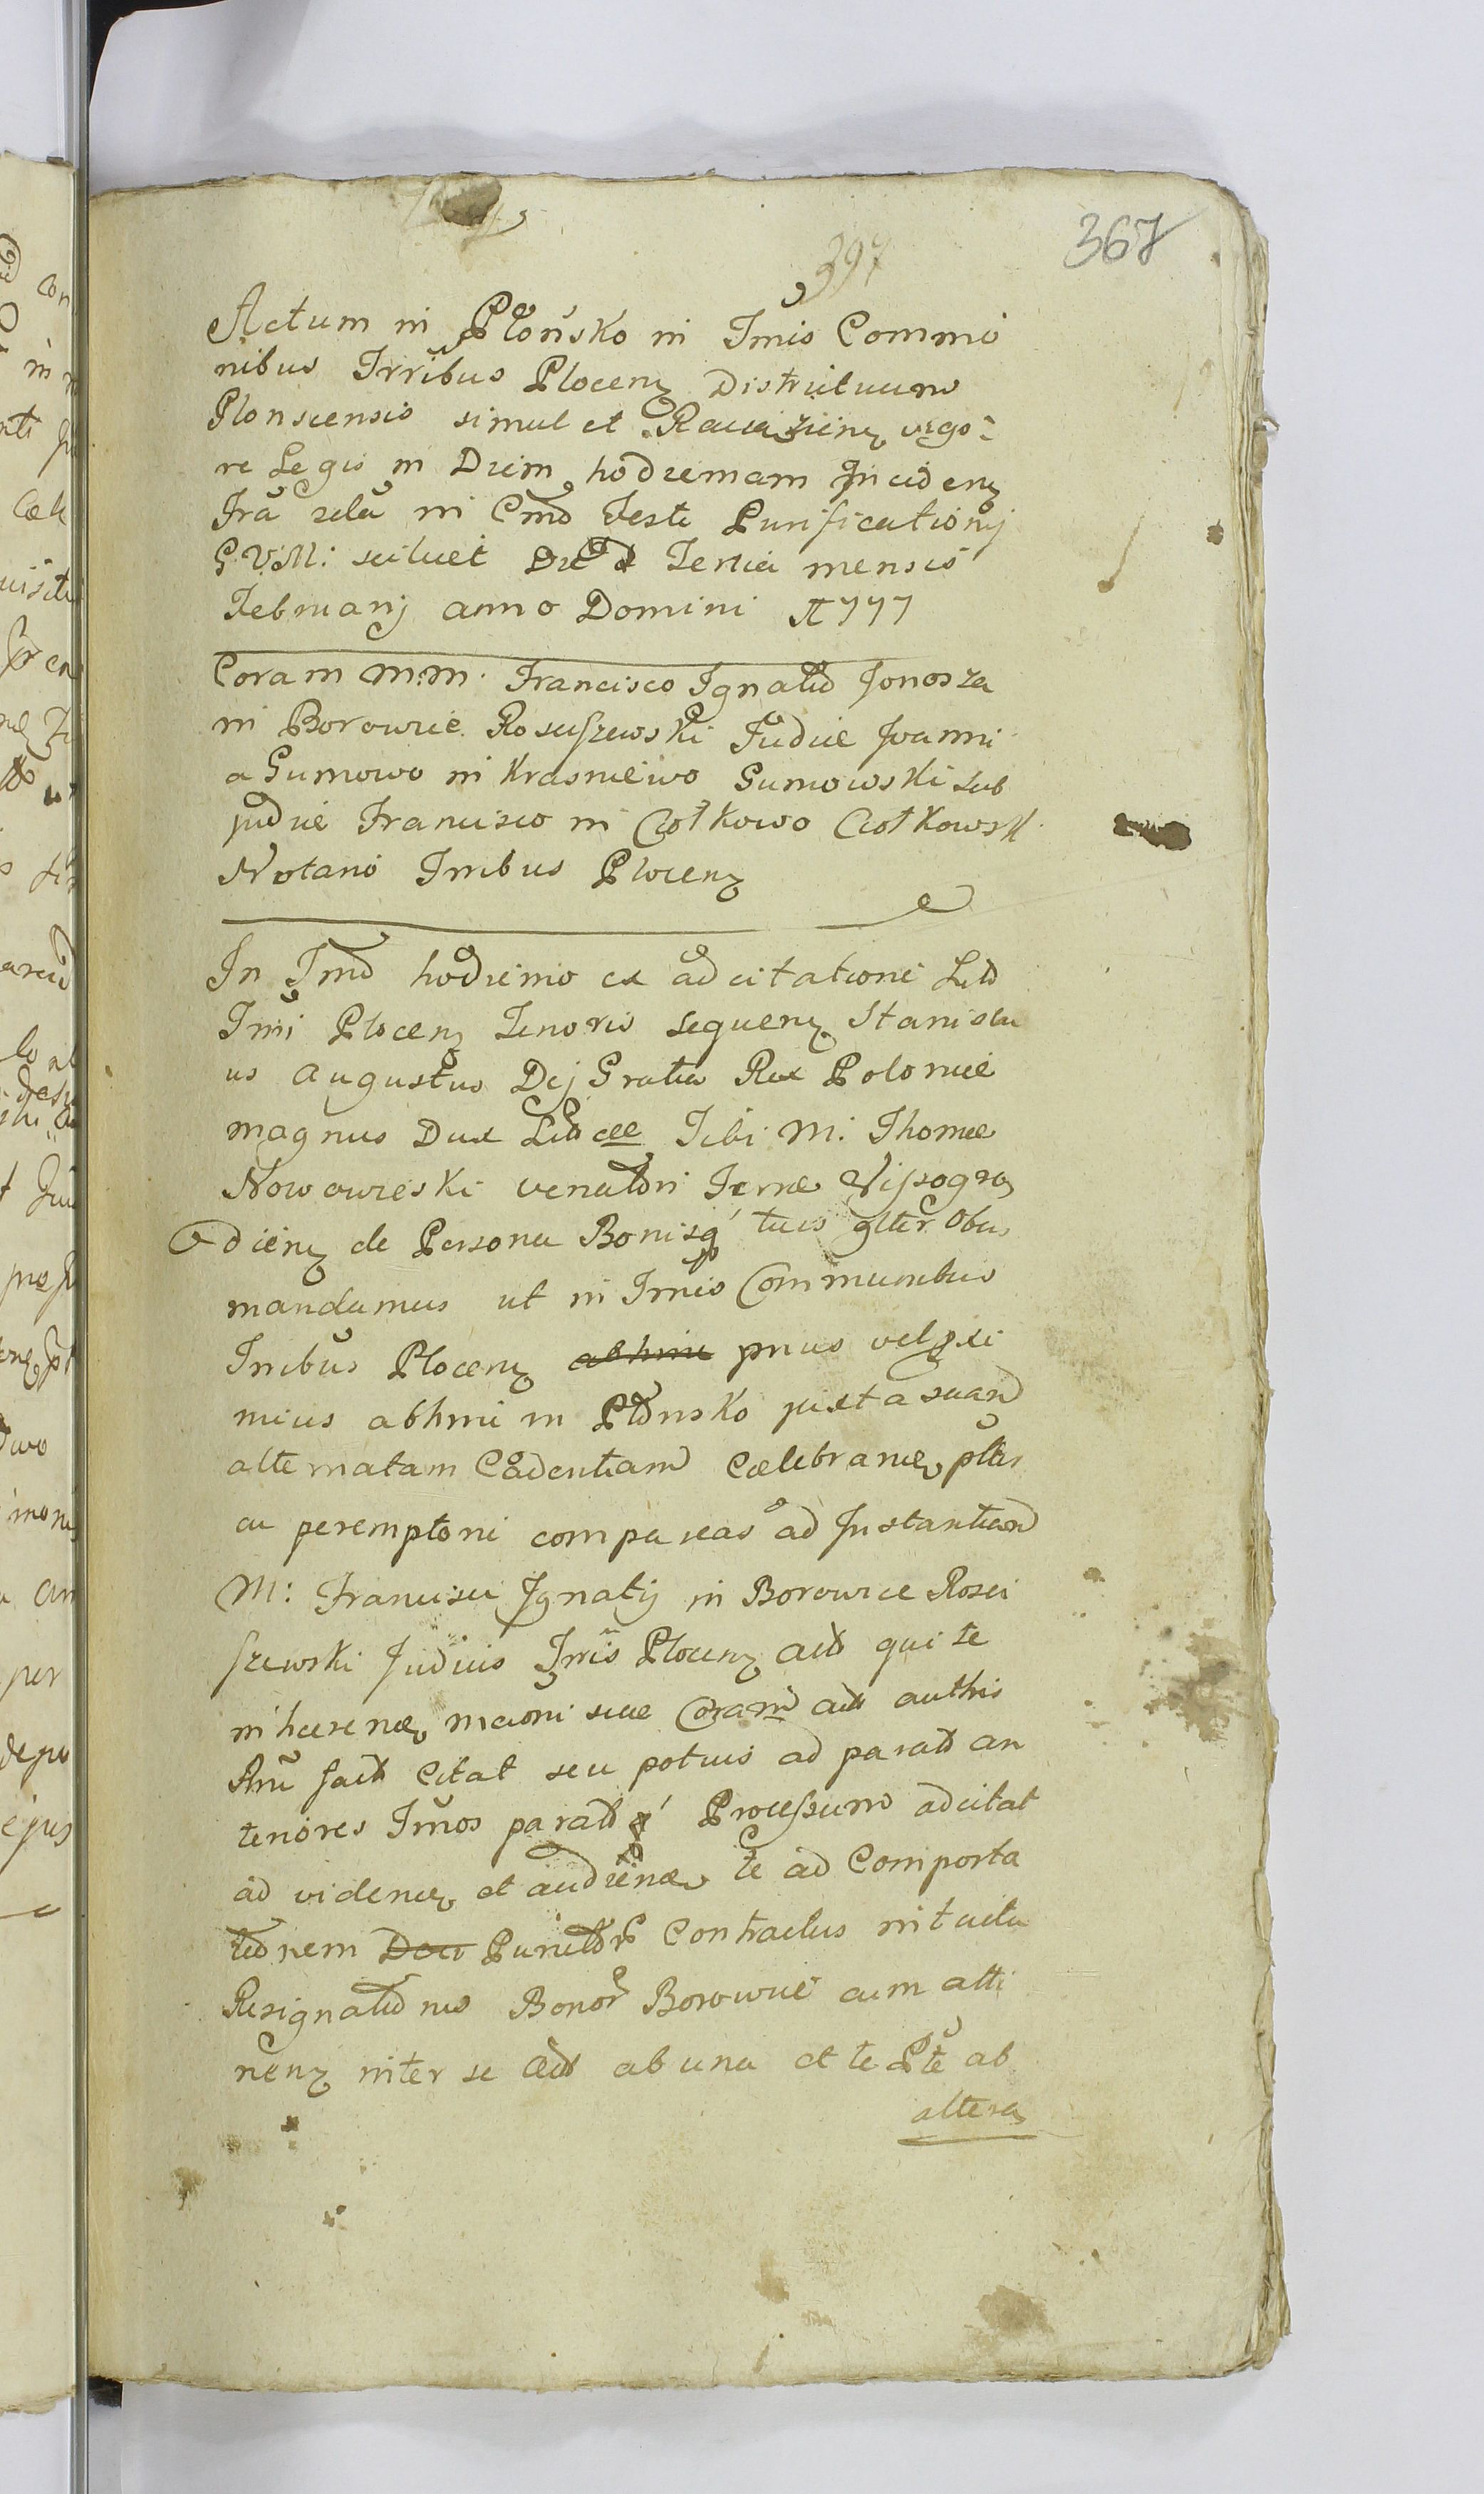 367
397
Actum in Płońsko in Tmis Commu
nibus Trribus Plocenz Districtuum
Plonscensis simul et Raciazienz vigo-
re Legis in Diem hodiernam Incidenz
Fra scla in Cmo Festi Purificationij
G.V.M: scilicet Die Tertia mensis
Februarij anno Domini 1777
Coram M.M. Francisco Ignatio Jonosza
in Borowice Rosciszewski Judice Joanni
a Gumowo in Krasniewo Gumowski Sub
judice Francisco in Ciołkowo Ciołkowski
Notario Trribus Plocenz
In Tmo hodierno ex adcitatione Lito
Tmi Plocenz Tenoris Sequenz Stanisla
us Augustus Dej Gratia Rex Polonice
magnus Dux Litvcee Tibi M. Thomæ
Nowowieski venatori Terræ Vissogra
dienz de Persona Bonisq tuis glter Obus
mandamus ut in Tmis Communibus
Trribus Plocenz abhinc prius vel pxi
mius abhinc in Płonsko juxta suam
alternatam Cadentiam Cælebranz ptis
cu peremptorie compareas ad Instantiam
M: Francisci Ignatij in Borowice Rosci
szewski Judicis Trris Plocenz act qui te
inhærenz maoni suæ Coram act authis
Rm fact Citat seu potius ad parato an
teriores Tmos parato Processum adcitat
ad videnz et audienz te ad Comporta
tionem Punctor Contractus intuitu
Resignationis Bonor Borowice cum atti
nenz inter se act ab una et te Pte ab
altera